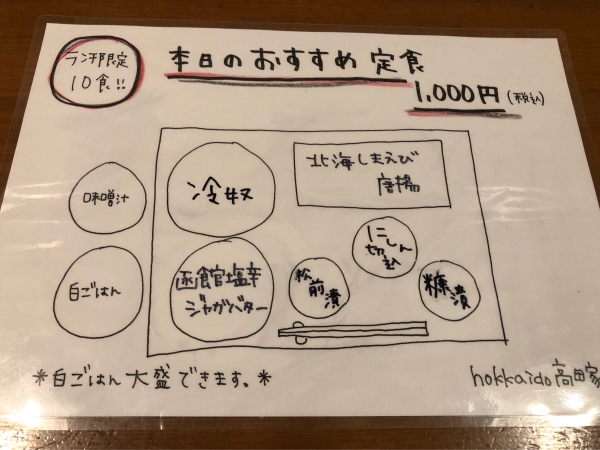 ランチ限定
10食!!
本日のおすすめ定食
1,000円(税込)
味噌汁
冷奴
北海しまえび
唐揚
白ごはん
函館塩辛
ジャガバター
松前漬
にしん
切込
糠漬
*白ごはん大盛できます。*
hokkaido高田家